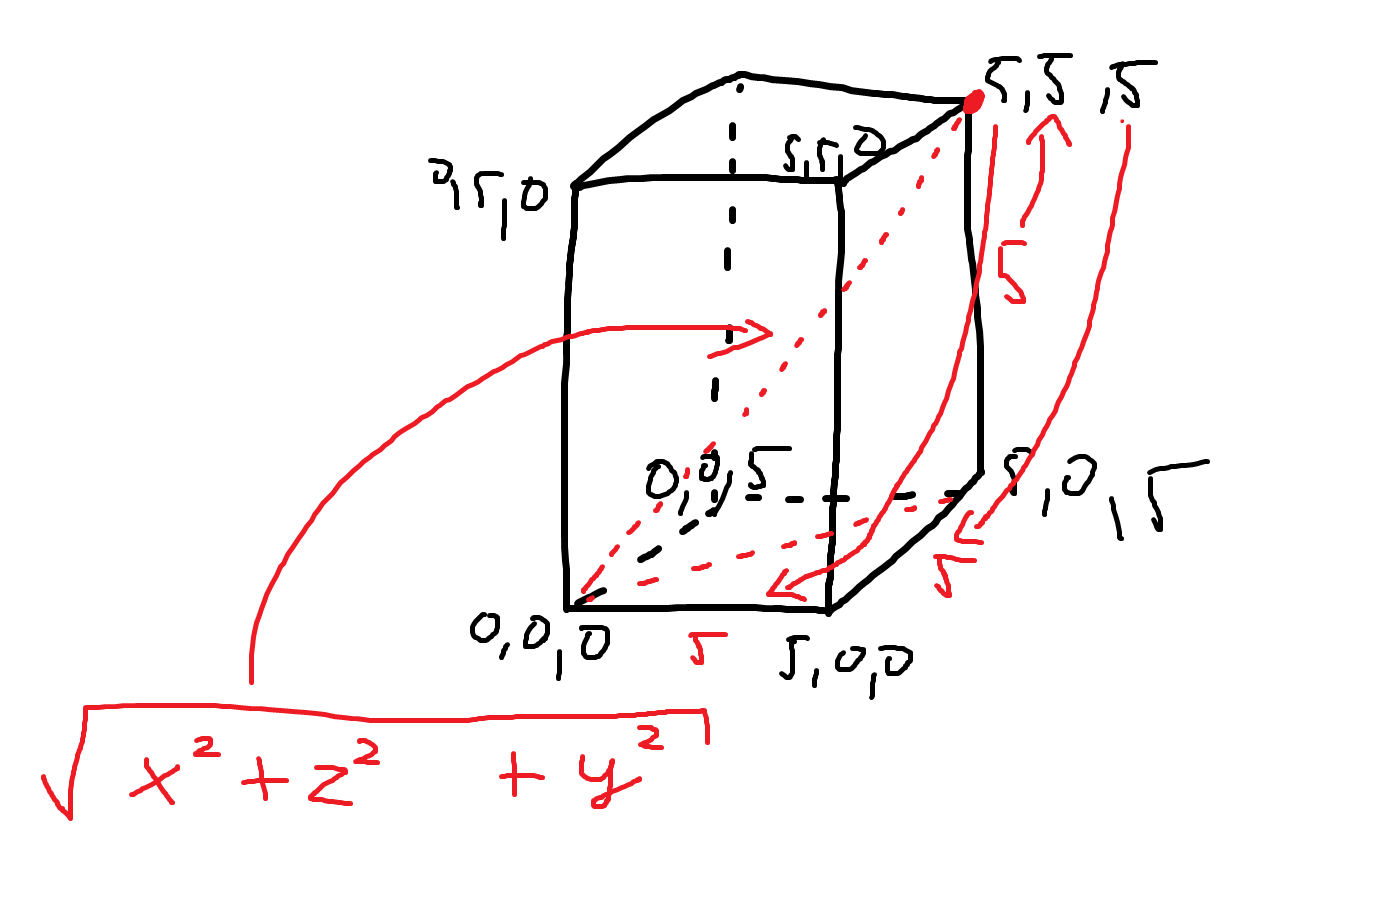 5,5,5
5,5,0
0,5,0
5
0,0,5
5,0,5
5
0,0,0
5
5,0,0
√x² + z² + y²